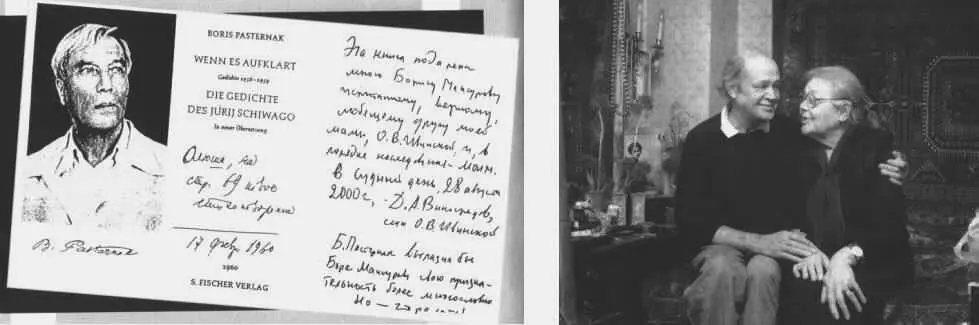 BORIS PASTERNAK
WENN ES AUFKLART
Gedichte 1956–1959
DIE GEDICHTE
DES JURIJ SCHIWAGO
In neuer Übersetzung
Олюша, на
стр. 69
17 февр 1960
1960
S. FISCHER VERLAG
B. Pasternak
Эта книга подарена
мною Борису Мансурову
испытанному, верному,
любящему другу моей
мамы, О.В.Ивинской, и, в
порядке наследования – моим.
В судный день, 28 августа
2000 г, – Д.А.Виноградов,
сын О.В.Ивинской
Б.Пастернак выразил бы
Боре Мансурову свою призна-
тельность более многословно
Но –